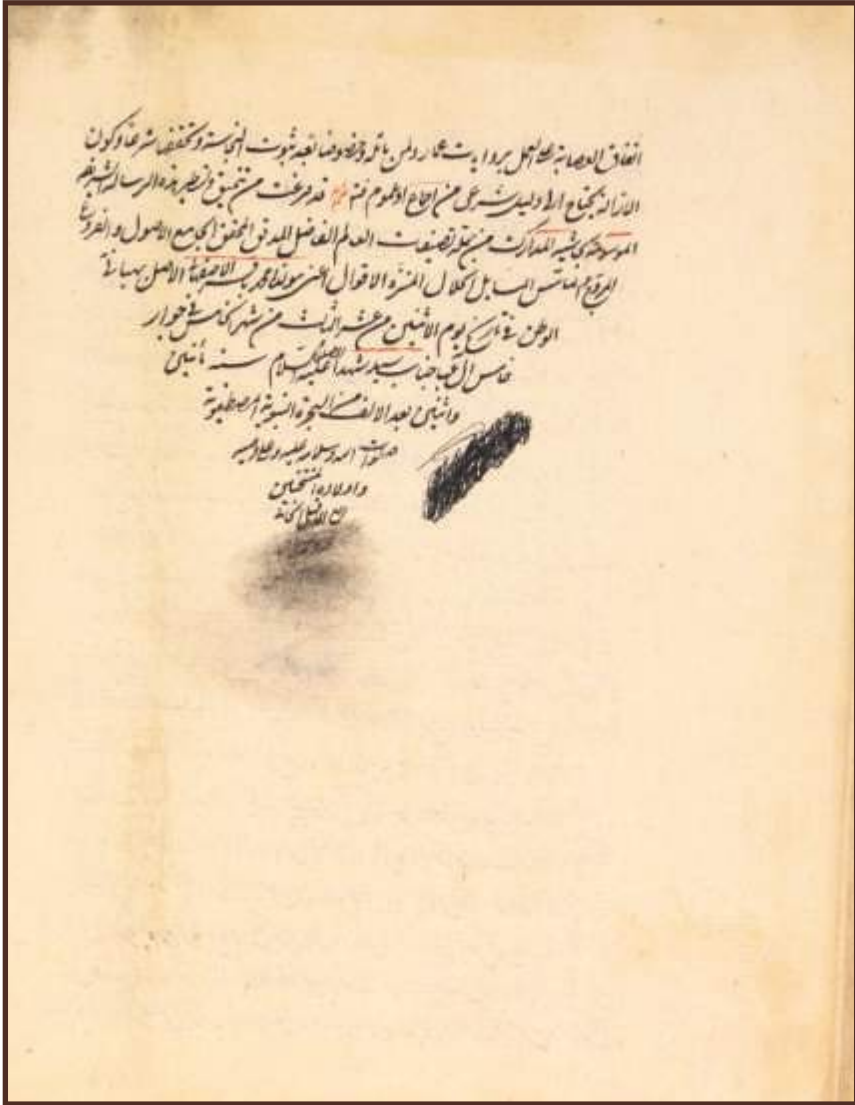 اتفاق العصابة على العمل بروايات عمار ولمن ماثله وخصوصا بعد ثبوت النجاسة وتحققها شرعا وكون
الازالة يحتاج الى دليل شرعى من اجماع او عموم فتم قد فرغت من تنميق وتسطير هذه الرسالة الشريفة
الموسومة بحاشية المدارك من جملة تصنيفات العالم الفاضل المدقق المحقق الجامع الاصول والفروع
المسايل الحلال المنزه الاقوال اعنى مولانا محمد باقر الاصفهانى الاصل بهبهانى
الوطن فى تاريخ يوم الاثنين من عشر الثالث من شهر الخامس فى جوار
خامس آل عبا جناب سيد شهدا عليه السلام سنه مأتين
واثنين بعد الالف من الهجرة النبوية المصطفوية
صلوات الله وسلامه عليه وعلى وصيه
واولاده المنتجبين